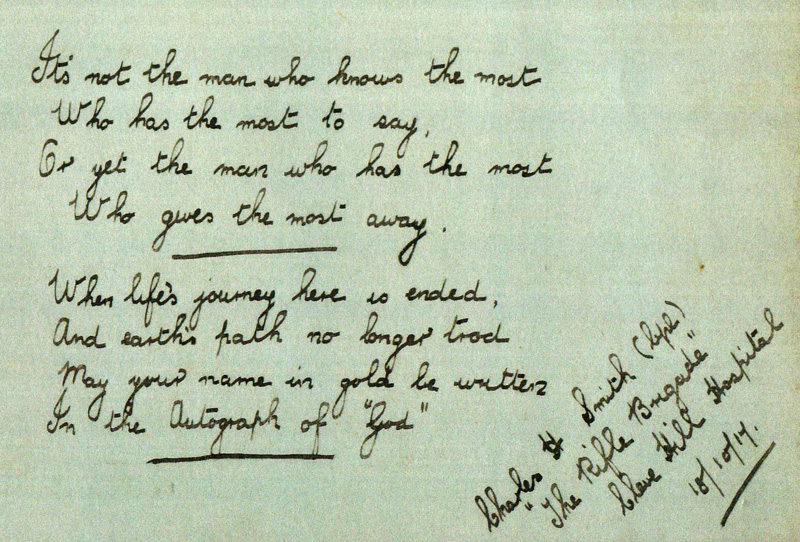 It's not the man who knows the most
Who has the most to say,
Or yet the man who has the most
Who gives the most away.
When life's journey here is ended,
And earth's path no longer trod
May your name in gold be written
In the Autograph of "God"
Charles H Smith (Cpl)
"The Rifle Brigade"
Cleve Hill Hospital
18/10/17.